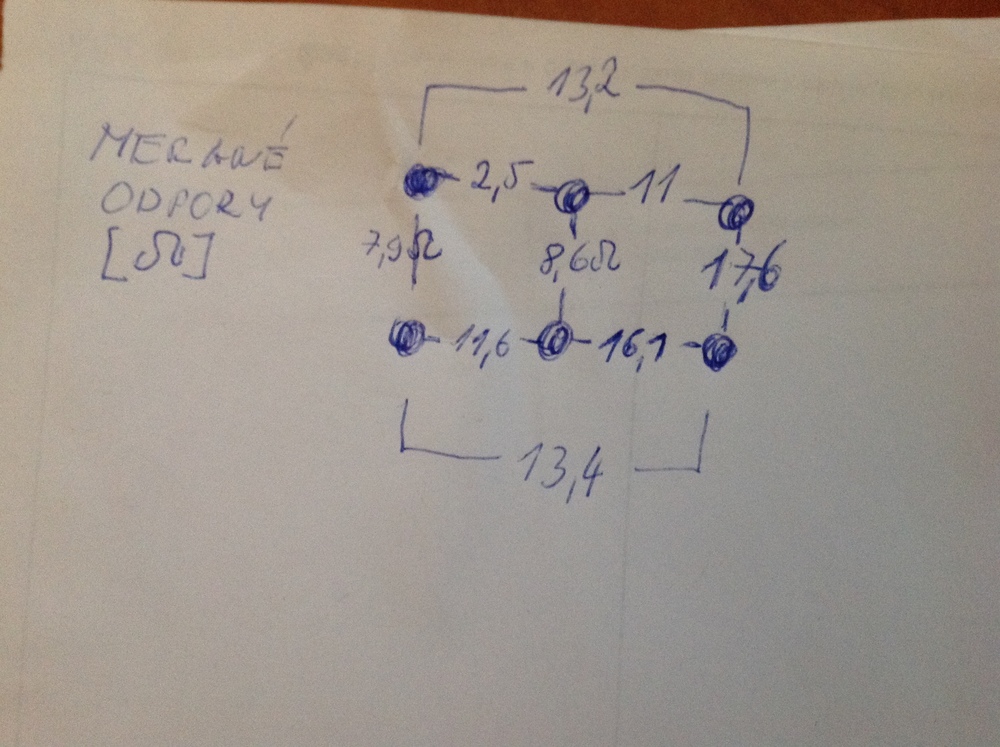 MERANÉ
ODPORY
[Ω]
13,2
2,5 11
7,9Ω 8,6Ω 17,6
11,6 16,1
13,4